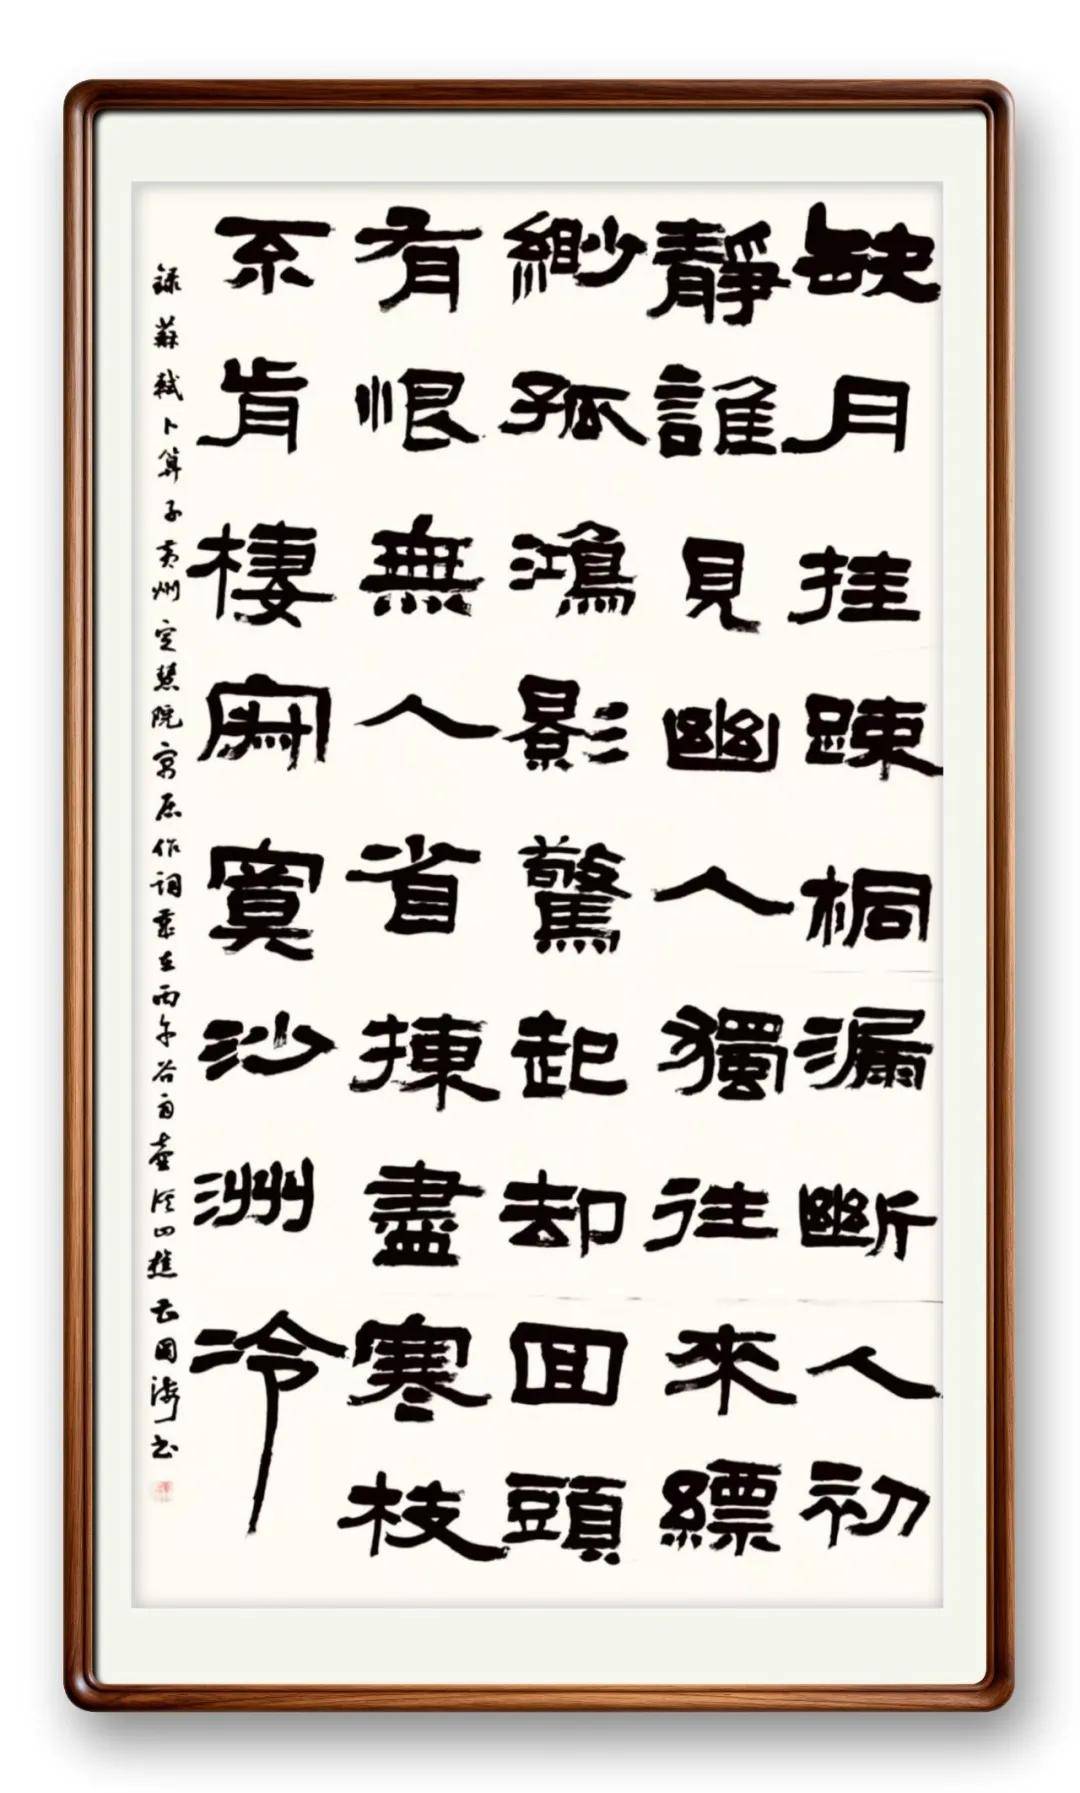 缺月挂踈桐漏斷人初
靜誰見幽人獨往來縹
緲孤鴻影驚起却回頭
有恨無人省揀盡寒枝
不肯棲寂寞沙洲冷
錄蘇軾卜算子黄州定慧院寓居作詞歲在丙午谷雨壺溪山樵國海书